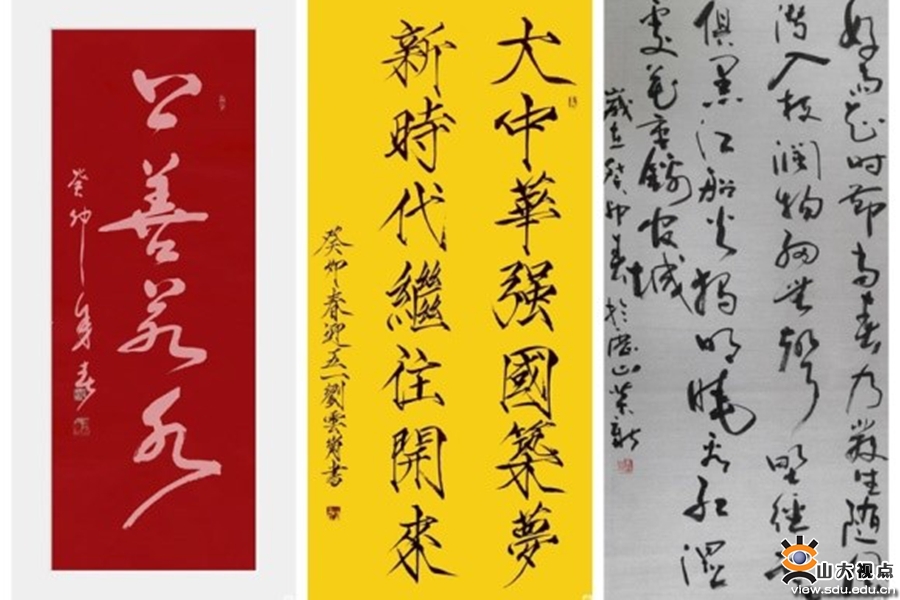 上善若水
癸卯
大中華强國築夢
新時代繼往開來
癸卯春迎五一劉雲書
好雨知时节当春乃發生随风
潜入夜润物细无声野径云
俱黑江船火独明晓看红湿
处花重锦官城
歲在癸卯春於
山大视点
view.sdu.edu.cn